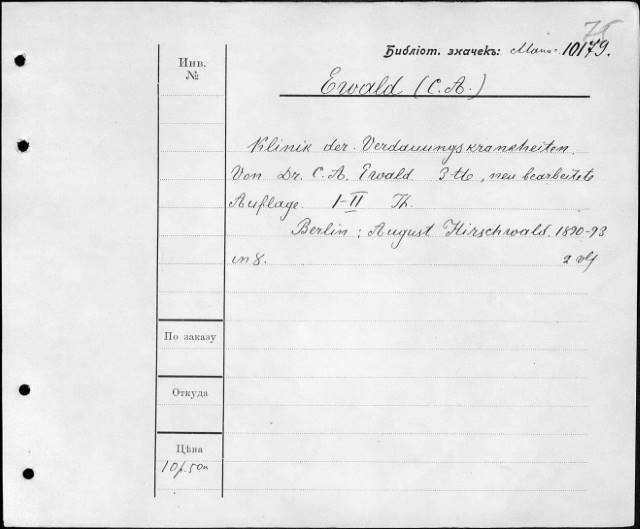 75
Библіот. значекъ: 10179.
Инв.
№
Ewald (C. A.)
Klinik der Verdauungskrankheiten.
Von Dr. C. A. Ewald 3-tte, neu bearbeitete
Auflage. I-II Th.
Berlin: August Hirschwald. 1890-93
in 8.
По заказу
Откуда
Цѣна